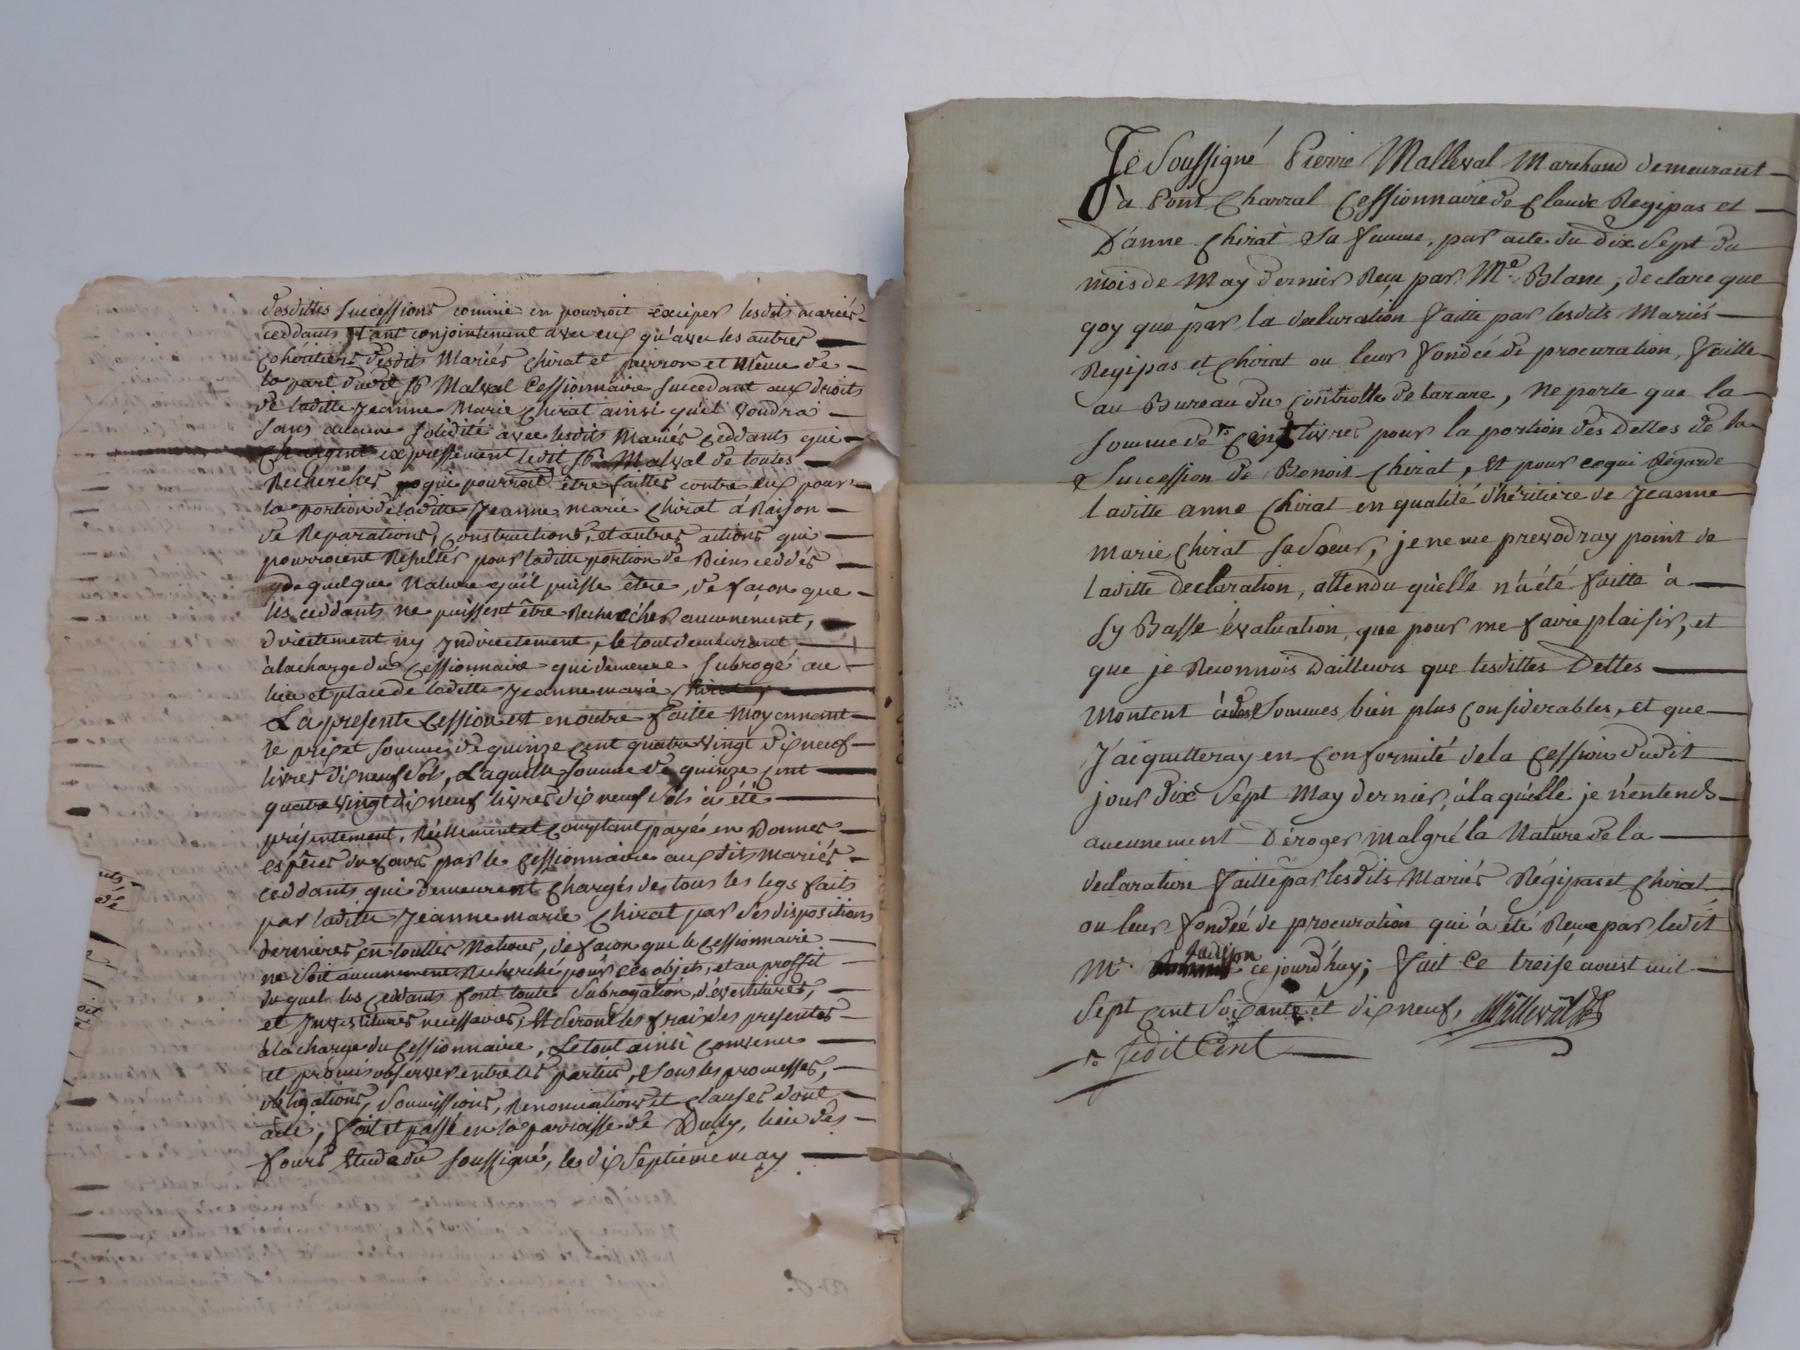 desdittes successions comme en pourroit exciper lesdits mariés
ceddants tant conjointement avec eux qu'avec les autres
cohéritiers desdits Mariés Chirat et peirron et même de
la part dudit Sr Malval Cessionnaire succedant aux droits
de laditte Jeanne Marie Chirat ainsi qu'il voudra
sans aucune solidité avec lesdits Mariés Ceddants qui
Chargent expressement ledit Sr Malval de toutes
Recherches qui pourroit être faittes contre eux pour
la portion de laditte Jeanne marie Chirat à Raison
de Reparations, Constructions, et autres actions qui
pourroient Resulter pour laditte portion de Biens ceddés
de quelque Nature qu'il puisse être, de façon que
les ceddants ne puissent être Recherchés aucunement,
directement ny Indirectement, le tout demeurant
à la charge du Cessionnaire qui demeure subrogé au
lieu et place de laditte Jeanne marie Chirat
La presente Cession est en outre faitte moyennant
le prix et somme de quinze Cent quatre vingt dix neuf
livres dix neuf sols, Laquelle somme de quinze Cent
quatre vingt dix neuf livres dix neuf sols à été
présentement, Réellement et comptant payée en Bonnes
espêces du Cours par le Cessionnaire auxdits mariés
Ceddants qui demeurent Chargés de tous les legs faits
par laditte Jeanne marie Chirat par ses dispositions
dernieres en touttes Natures, de façon que le Cessionnaire
ne soit aucunement Recherché pour ces objets, et au proffit
du quel les Ceddants font toute subrogation, dévestitures,
et Investitures necessaires, Et seront les fraix des presentes
à la charge du Cessionnaire, Le tout ainsi Convenu
et promis observer entre les parties, sous les promesses,
obligations, soumissions, Renonciations et clauses dont
acte, fait et passé en la parroisse de Dully, lieu des
fours étude du soussigné, le dix septième may
Je Soussigné Pierre Malleval Marchand demeurant
à Pont Charral Cessionnaire de Claude Regipas et
D'anne Chirat sa femme, par acte du dix Sept du
mois de May dernier Reçu par Me. Blanc, declare que
qoy que par la declaration faitte par lesdits Mariés
Regipas et Chirat ou leur fondée de procuration, faitte
au Bureau du Contrôlle de tarare, ne porte que la
somme de Cent livres pour la portion des Dettes de la
Succession de Benoit Chirat, Et pour ce qui Regarde
laditte anne Chirat en qualité d'héritière de Jeanne
Marie Chirat sa Soeur, je ne me prevodray point de
laditte declaration, attendu quelle n'a été faitte à
Sy Basse évaluation que pour me faire plaisir, et
que je Reconnois d'ailleurs que lesdittes Dettes
Montent à des Sommes bien plus Considerables, et que
J'aiquitteray en Conformité de la Cession dudit
jour dix Sept May dernier, à laquelle je n'entends
aucunement Déroger malgré la Nature de la
declaration faitte par lesdits Mariés Régipas et Chirat
ou leur fondée de procuration qui à été Reçue par ledit
Me. ce jourd'huy; fait Ce treise aoust mil
Sept Cent Soixante et dix neuf, Malleval
ledit Cent